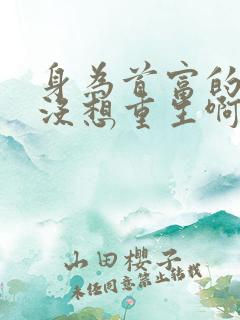 身为首富的
没想重生啊
山田櫻子
未经同意禁止转载